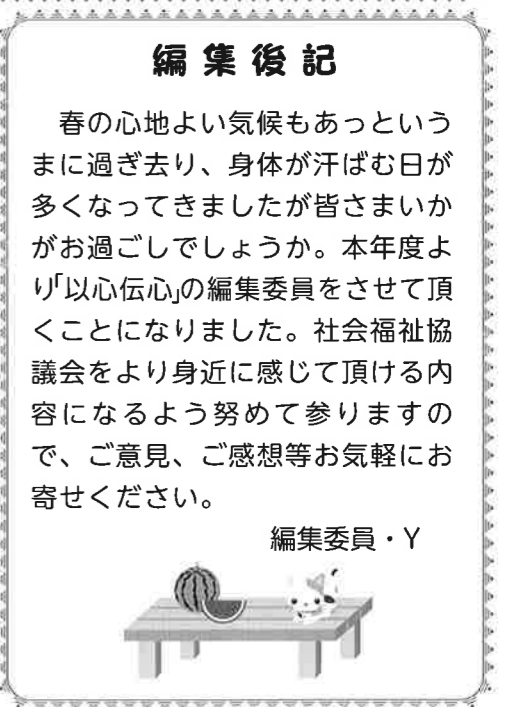 編集後記
　春の心地よい気候もあっという
まに過ぎ去り、身体が汗ばむ日が
多くなってきましたが皆さまいか
がお過ごしでしょうか。本年度よ
り「以心伝心」の編集委員をさせて頂
くことになりました。社会福祉協
議会をより身近に感じて頂ける内
容になるよう努めて参りますの
で、ご意見、ご感想等お気軽にお
寄せください。
編集委員・Y